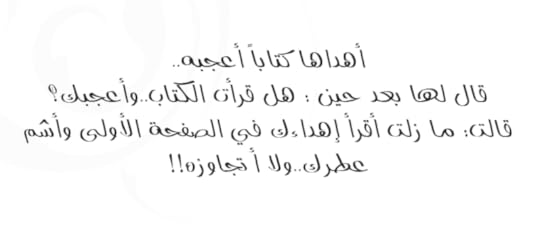 أهداها كتاباً أعجبه..
قال لها بعد حين : هل قرأت الكتاب..وأعجبك؟
قالت: ما زلت أقرأ إهداءك في الصفحة الأولى وأشم
عطرك..ولا أتجاوزه!!